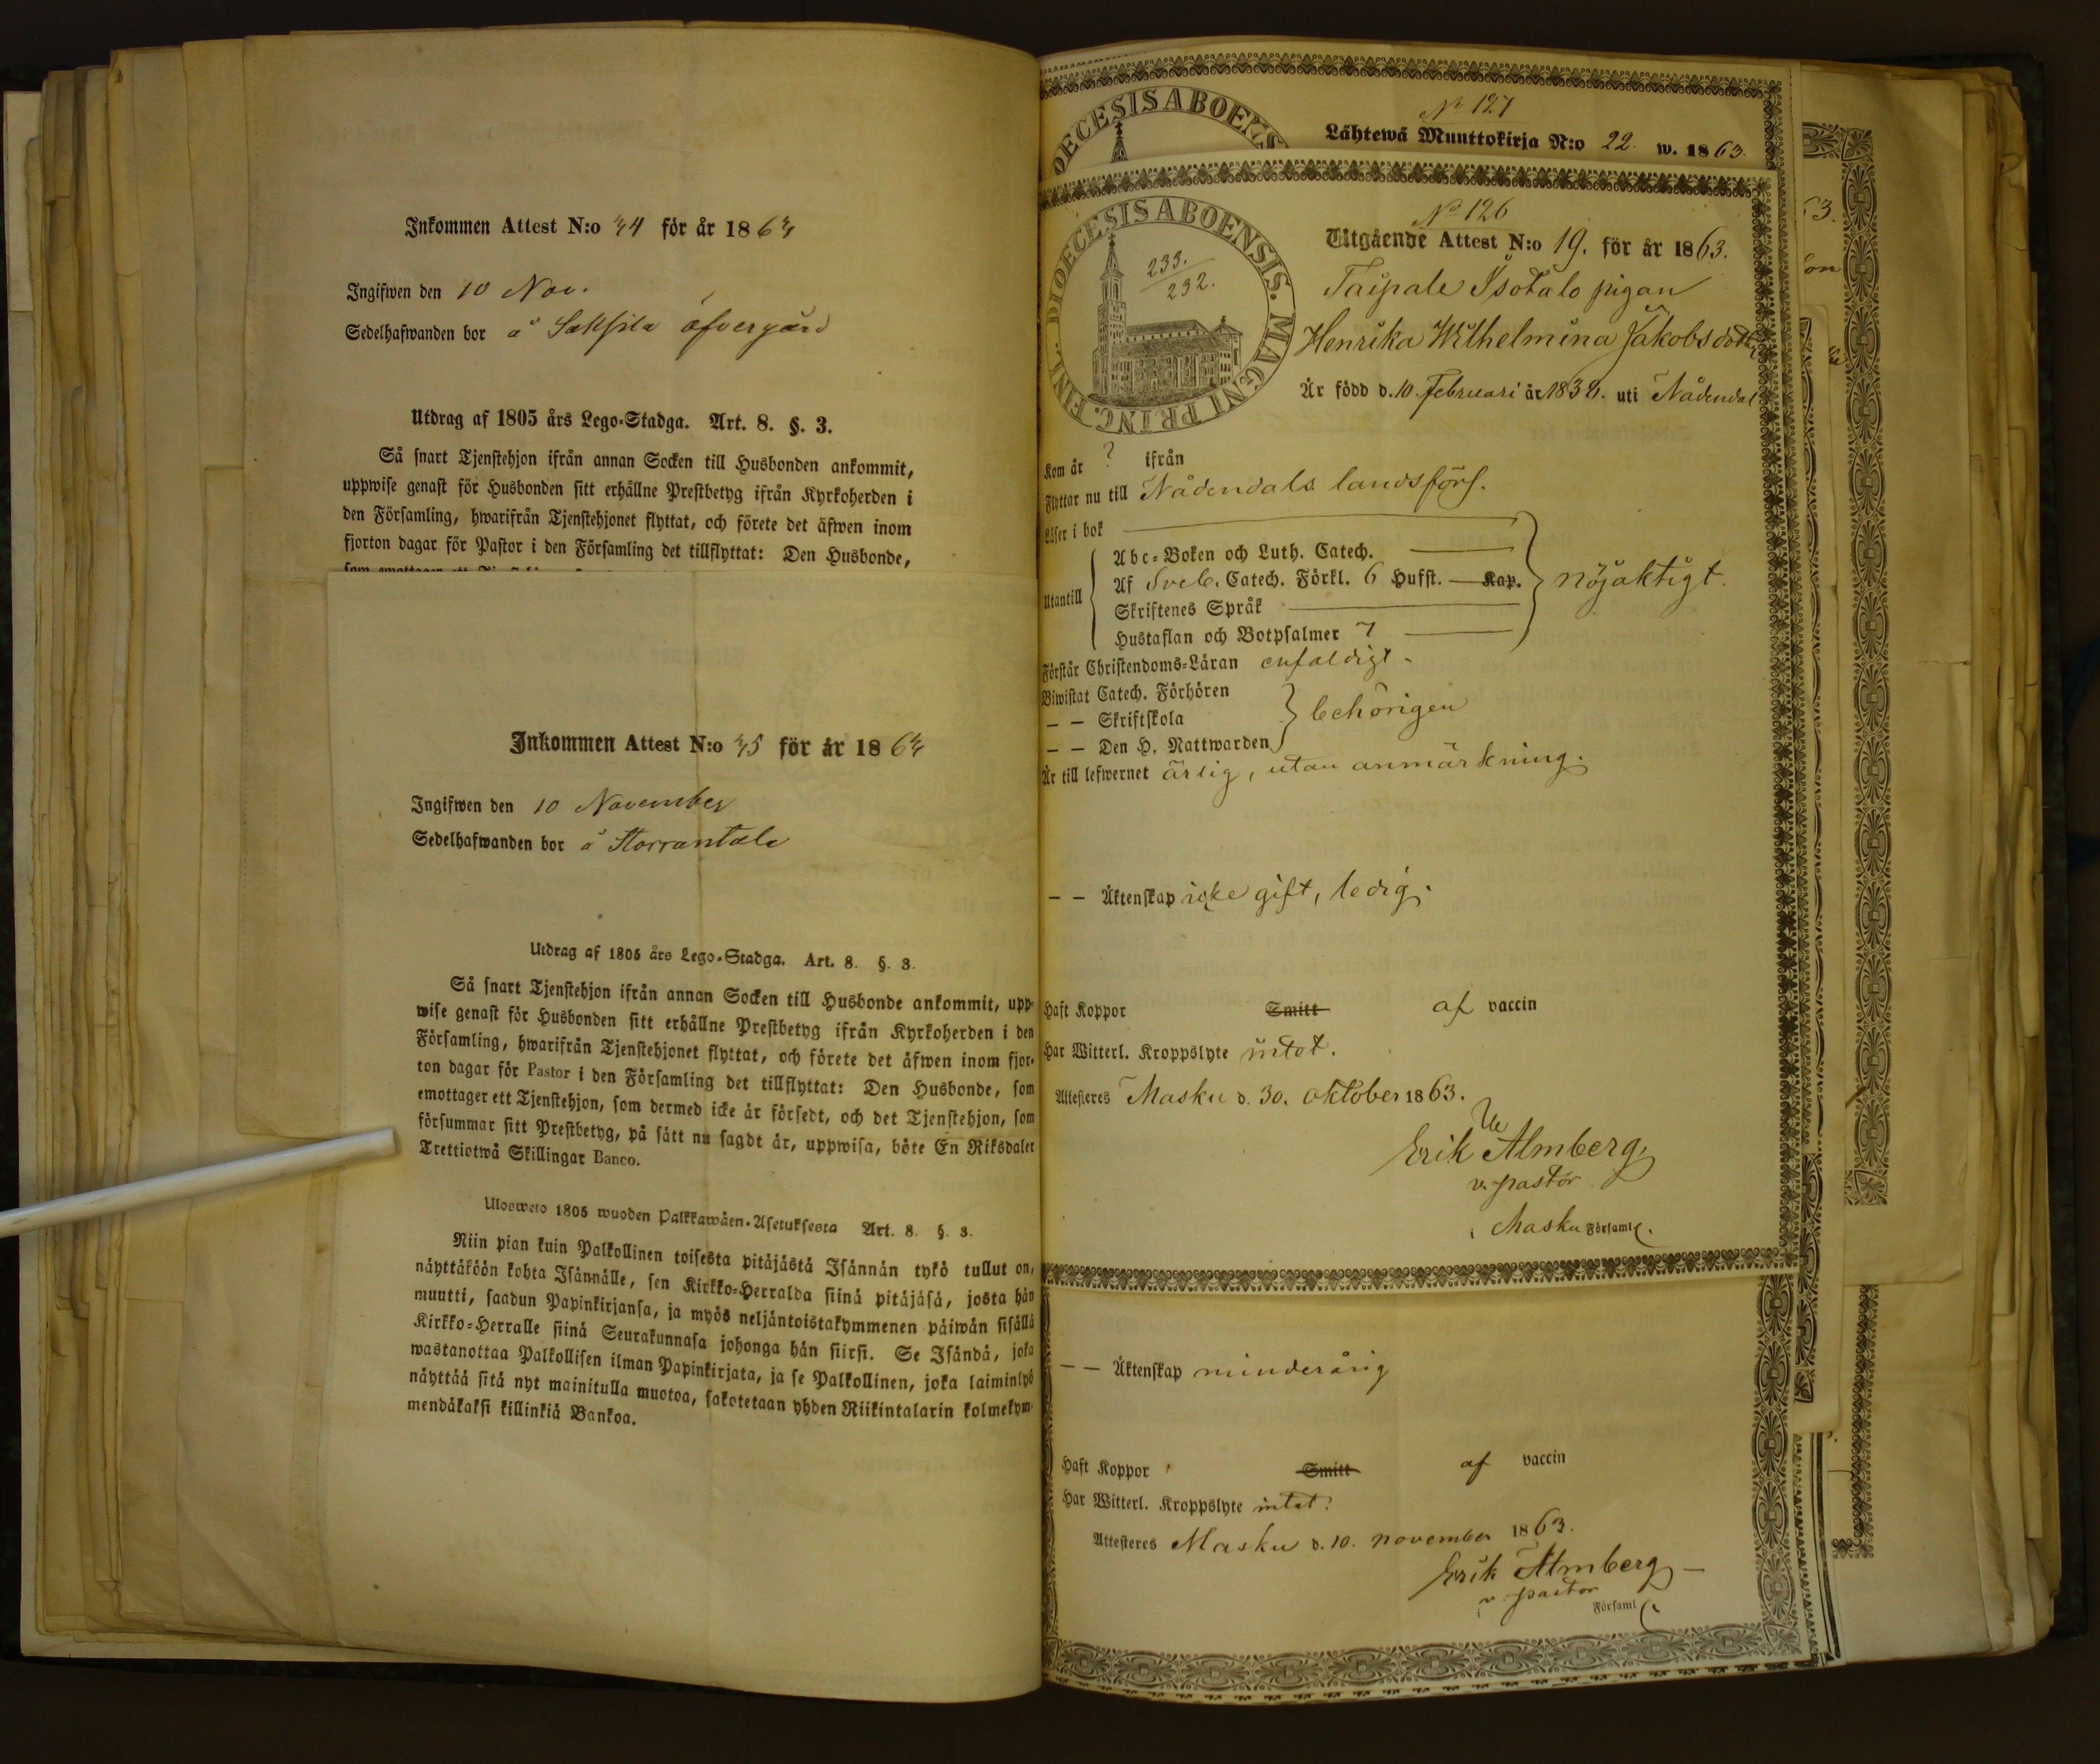 Inkommen Attest N:o 34 för år 1863
Ingifwen den 10 Nov.
Sedelhafwanden bor å Saksila öfvergård
Utdrag af 1805 års Lego-Stadga. Art. 8. §. 3.
Så snart Tjenstehjon ifrån annan Socken till Husbonden ankommit,
uppwise genast för Husbonden sitt erhållne Prestbetyg ifrån Kyrkoherden i
den Församling, hwarifrån Tjenstehjonet flyttat, och förete det äfwen inom
fjorton dagar för Pastor i den Församling det tillflyttat: Den Husbonde,
Inkommen Attest N:o 35 för år 1863
Ingifwen den 10 November
Sedelhafwanden bor å
Utdrag af 1805 års Lego-Stadga. Art. 8. §. 3.
Så snart Tjenstehjon ifrån annan Socken till Husbonde ankommit, upp-
wise genast för Husbonden sitt erhållne Prestbetyg ifrån Kyrkoherden i den
Församling, hwarifrån Tjenstehjonet flyttat, och förete det äfwen inom fjor-
ton dagar för Pastor i den Församling det tillflyttat: Den Husbonde, som
emottager ett Tjenstehjon, som dermed icke är försedt, och det Tjenstehjon, som
försummar sitt Prestbetyg, på sätt nu sagdt är, uppwisa, böte En Riksdaler
Trettiotwå Skillingar Banco.
Uloswето 1805 wuoden Palkkawäen-Asetuksesta Art. 8. §. 3.
Niin pian kuin Palkollinen toisesta pitäjästä Isännän tykö tullut on,
näyttäköön kohta Isännälle, sen Kirkko-Herralda siinä pitäjäsä, josta hän
muutti, saadun Papinkirjansa, ja myös neljäntoistakymmenen päiwän sisällä
Kirkko-Herralle siinä Seurakunnasa johonga hän siirsi. Se Isändä, joka
wastanottaa Palkollisen ilman Papinkirjata, ja se Palkollinen, joka laiminlyö
näyttää sitä nyt mainitulla muotoa, sakotetaan yhden Riikintalarin kolmekym-
mendäkaksi killinkiä Bankoa.
DIOECESIS ABOENSIS
No 127
Lähtewä Muuttokirja N:o 22. w. 1863.
DIOECESIS ABOENSIS. MAGNI PRINC. FINL.
233.
232.
No 126
Utgående Attest N:o 19. för år 1863.
Taipale Isotalo pigan
Henrika Wilhelmina Jakobsdotter
Är född d. 10. Februari år 1838. uti Nådendal
Kom år ? ifrån
Flyttar nu till Nådendals landsförs.
Läser i bok
Utantill
Abc-Boken och Luth. Catech.
Af Sveb. Catech. Förkl. 6 Hufst. — Kap.
nöjaktigt.
Skriftenes Språk
Hustaflan och Botpsalmer 7
Förstår Christendoms-Läran enfaldigt.
Biwistat Catech. Förhören
— — Skriftskola
behörigen
— — Den H. Nattwarden
Är till lefwernet ärlig, utan anmärkning.
— — Äktenskap icke gift, ledig.
Haft Koppor Smitt af vaccin
Har Witterl. Kroppslyte intet.
Attesteres Masku d. 30. oktober 1863.
Erik Almberg,
v. pastor
i Masku Församl.
— — Äktenskap minderårig
Haft Koppor Smitt af vaccin
Har Witterl. Kroppslyte intet.
Attesteres Masku d. 10. november 1863.
Erik Almberg
v. pastor
Församl.
63.